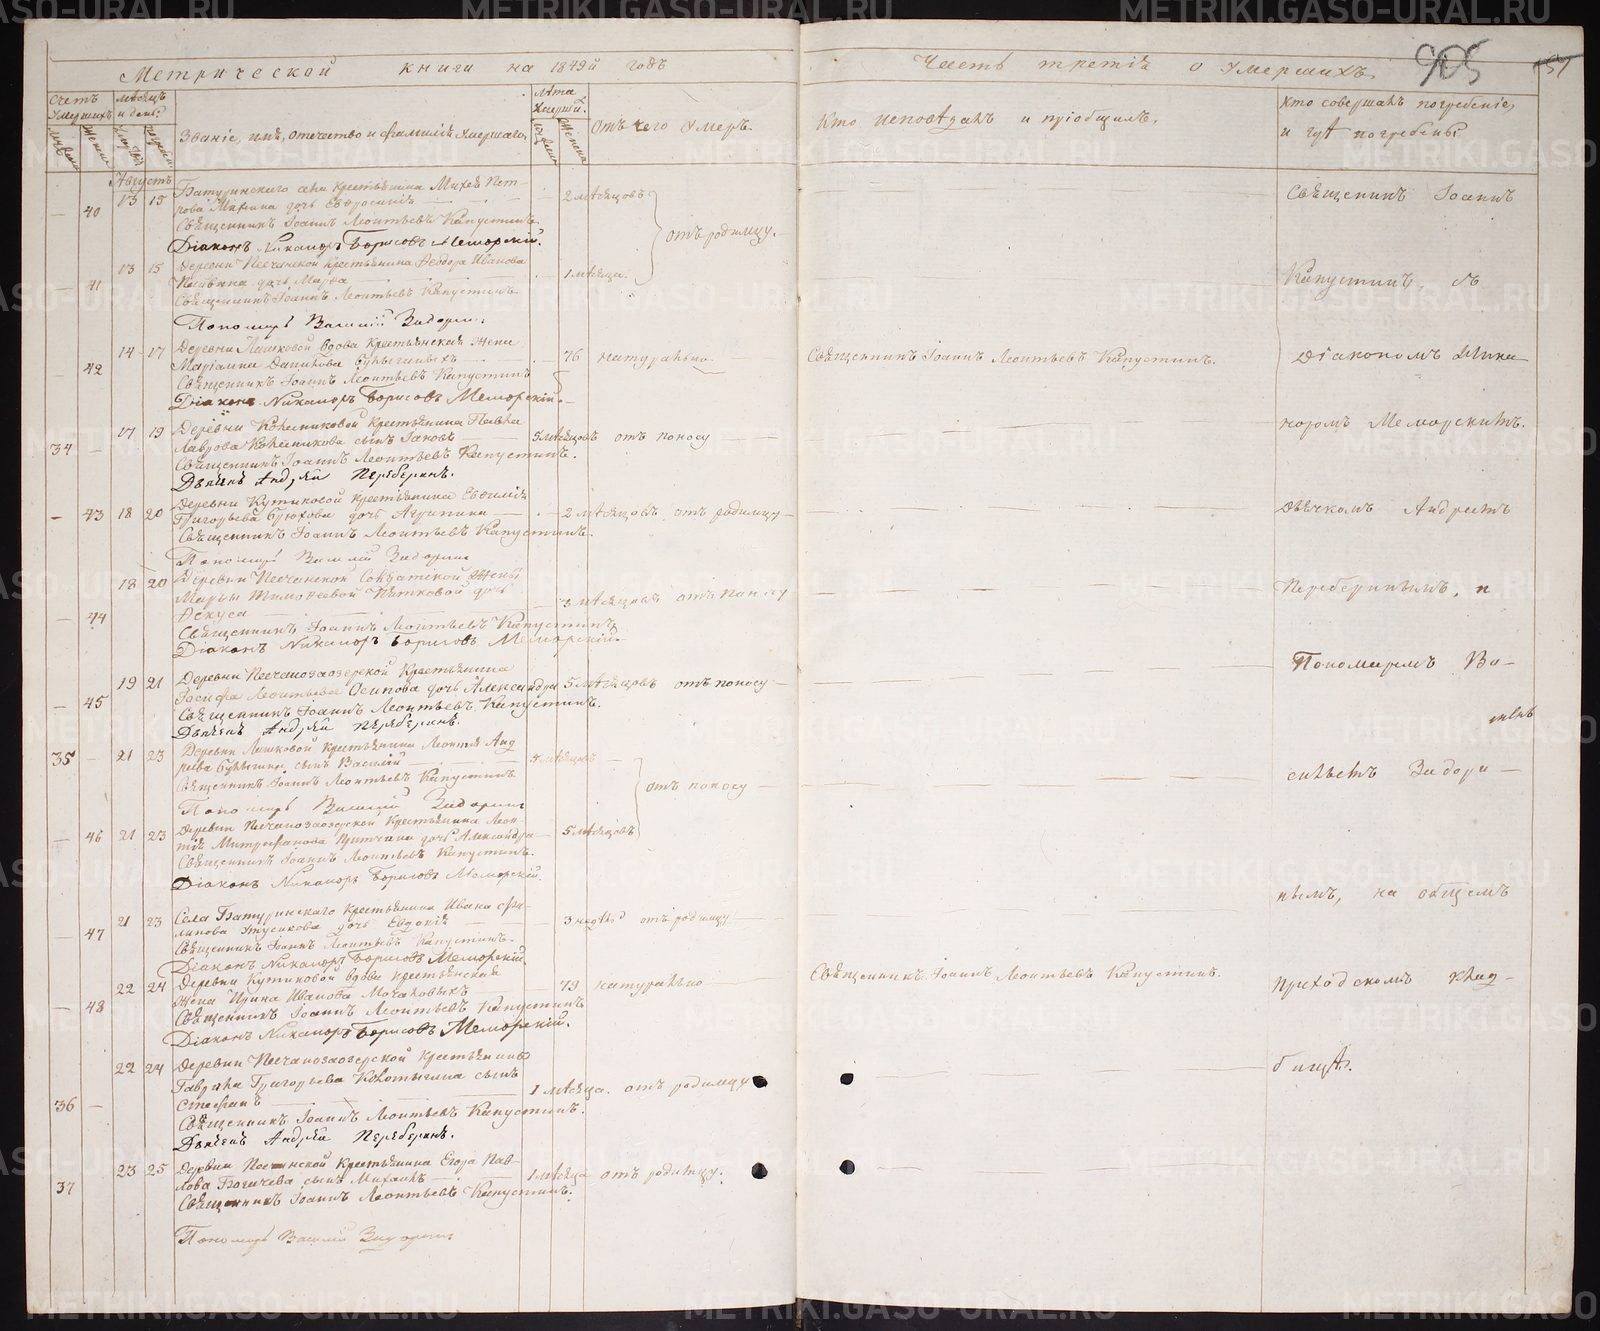 Метрической книги на 1849й годъ
Часть третія о умершихъ
905
Счетъ умершихъ
Мѣсяцъ и день
Званіе, имя, отечество и фамилія умершаго
Лѣта умерш.
Отъ чего умеръ.
Кто исповѣдалъ и пріобщилъ.
Кто совершалъ погребеніе, и гдѣ погребены
Августъ
40 13 15 Батуринскаго села крестьянина Михея Пет-
рова дочь Евфросинія 2 мѣсяцовъ
Священникъ Іоаннъ Леонтьевъ Капустинъ
Діаконъ Никаноръ Борисовъ Меморскій.
отъ родимцу.
41 13 15 Деревни Песчанской крестьянина Ѳеодора Иванова
дочь Марѳа 1 мѣсяца.
Священникъ Іоаннъ Леонтьевъ Капустинъ
Пономарь Василій Задорин
42 14 17 Деревни Лашковой вдова крестьянская жена
Маріамна Данилова Булыгиныхъ 76 натурально Священникъ Іоаннъ Леонтьевъ Капустинъ.
Священникъ Іоаннъ Леонтьевъ Капустинъ
Діаконъ Никаноръ Борисовъ Меморскій.
34 17 19 Деревни Колесниковой крестьянина Павла
Лаврова Колесникова сынъ Іаковъ 5 мѣсяцовъ отъ поносу
Священникъ Іоаннъ Леонтьевъ Капустинъ.
Дьячекъ Андрей Переберинъ.
43 18 20 Деревни Кутиковой крестьянина Евфимія
Григорьева дочь Агрипина 2 мѣсяцовъ отъ родимцу
Священникъ Іоаннъ Леонтьевъ Капустинъ.
Пономарь Василій Задорин
44 18 20 Деревни Песчанской Солдатской жены
Марьи Тимоѳеевой Пятковой дочь
Ѳекуса 3 мѣсяцовъ отъ поносу
Священникъ Іоаннъ Леонтьевъ Капустинъ
Діаконъ Никаноръ Борисовъ Меморскій.
45 19 21 Деревни Песчанозаозерской Крестьянина
Іосифа Леонтьева Осипова дочь Александра 5 мѣсяцовъ отъ поносу
Священникъ Іоаннъ Леонтьевъ Капустинъ.
Дьячекъ Андрей Переберинъ.
35 21 23 Деревни Лашковой крестьянина Леонтія Анд
реева Булыгина сынъ Василій мѣсяцовъ
Священникъ Іоаннъ Леонтьевъ Капустинъ
Пономарь Василій Задорин
отъ поносу
46 21 23 Деревни Песчанозаозерской крестьянина Леон-
тія Митрофанова дочь Александра 5 мѣсяцовъ
Священникъ Іоаннъ Леонтьевъ Капустинъ.
Діаконъ Никаноръ Борисовъ Меморскій.
47 21 23 Села Батуринскаго крестьянина Ивана Фи-
липова Утусикова дочь Евдокія 3 недѣль отъ родимцу
Священникъ Іоаннъ Леонтьевъ Капустинъ.
Діаконъ Никаноръ Борисовъ Меморскій.
48 22 24 Деревни Кутиковой вдова крестьянская
жена Ирина Иванова Мочаловыхъ 79 натурально Священникъ Іоаннъ Леонтьевъ Капустинъ.
Священникъ Іоаннъ Леонтьевъ Капустинъ
Діаконъ Никаноръ Борисовъ Меморскій.
36 22 24 Деревни Песчанозаозерской крестьянина
Гаврила Григорьева Колотыгина сынъ
Стефанъ 1 мѣсяца. отъ родимцу
Священникъ Іоаннъ Леонтьевъ Капустинъ.
Дьячекъ Андрей Переберинъ.
37 23 25 Деревни Песчанской крестьянина Егора Пав-
лова сынъ Михаилъ 1 мѣсяца отъ родимцу.
Священникъ Іоаннъ Леонтьевъ Капустинъ.
Пономарь Василій Задорин
Священникъ Іоаннъ
Капустинъ, съ
діакономъ Ника-
норомъ Меморскимъ.
дьячкомъ Андреемъ
Переберинымъ, и
Пономаремъ Ва-
сильемъ Задори-
нымъ, на общемъ
приходскомъ клад-
бищѣ.
METRIKI.GASO-URAL.RU